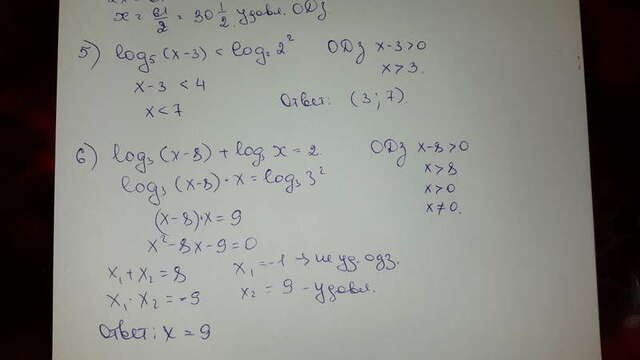 x = 61/2 = 30 1/2. удовл. ОДз
5) log₅ (x-3) < log₂ 2² ОДз x-3>0
x-3 < 4 x>3.
x<7 Ответ: (3;7).
6) log₃ (x-8) + log₃ x = 2. ОДз x-8>0
log₃ (x-8)·x = log₃ 3² x>8
x>0
(x-8)·x = 9 x≠0.
x²-8x-9=0
x₁+x₂=8 x₁=-1 → не уд. одз.
x₁·x₂=-9 x₂ = 9 - удовл.
Ответ: x = 9